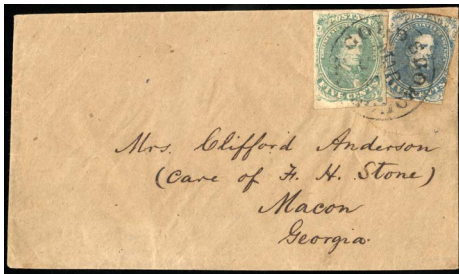 POSTAGE
FIVE CENTS
Mrs. Clifford Anderson
(Care of F. H. Stone)
Macon
Georgia.